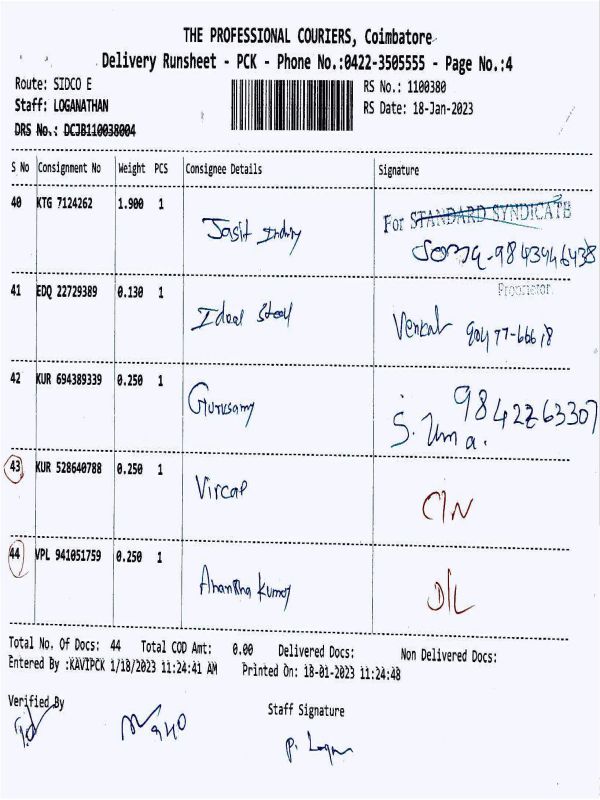 THE PROFESSIONAL COURIERS, Coimbatore
Delivery Runsheet - PCK - Phone No.:0422-3505555 - Page No.:4
Route: SIDCO E
RS No.: 1100380
Staff: LOGANATHAN
RS Date: 18-Jan-2023
DRS No.: DCJB110038004
S No Consignment No Weight PCS Consignee Details Signature
40 KTG 7124262 1.900 1 For STANDARD SYNDICATE
9843946438
Proprietor
41 EDQ 22729389 0.130 1 Ideal Steel Venkat 90477-66618
42 KUR 694389339 0.250 1 Gurusamy S. Uma. 9842263307
43 KUR 528640788 0.250 1 Vircap C/N
44 VPL 941051759 0.250 1 Anantha Kumar D/L
Total No. Of Docs: 44 Total COD Amt: 0.00 Delivered Docs: Non Delivered Docs:
Entered By :KAVIPCK 1/18/2023 11:24:41 AM Printed On: 18-01-2023 11:24:48
Verified By
Staff Signature